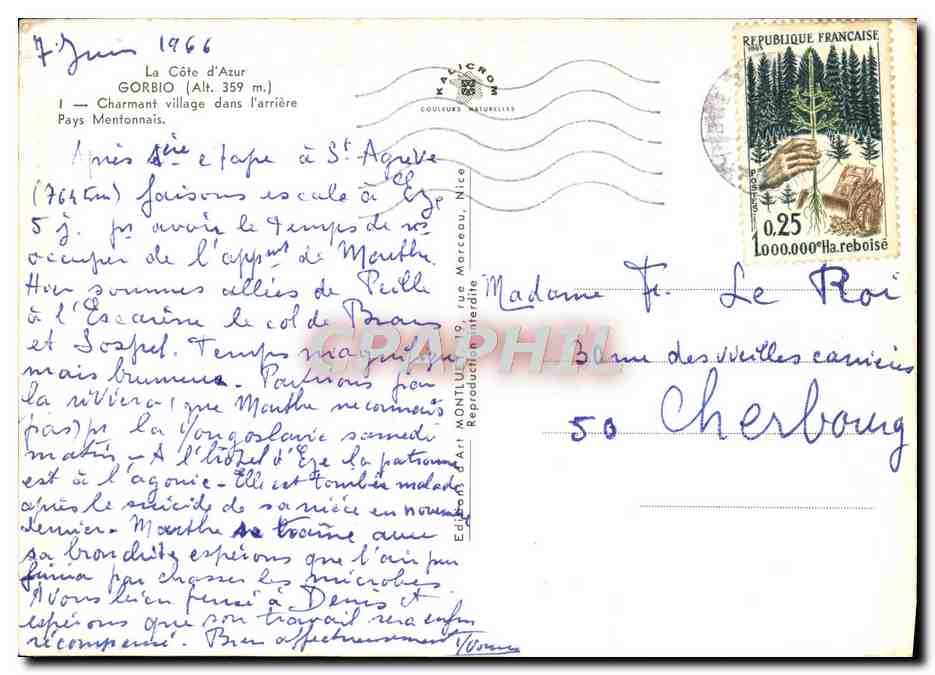 7 Juin 1966
La Côte d'Azur
GORBIO (Alt. 359 m.)
1 — Charmant village dans l'arrière
Pays Mentonnais.
KALICROM
COULEURS NATURELLES
Après 1ère etape à St Agrève
(764 Km) faisons escale à Eze
5 j. pr avoir le temps de ns
occuper de l'appmt de Marthe.
Hier sommes allées de Peille
à l'Escarène le col de Braus
et Sospel. Temps magnifique
mais brumeux. Partirons par
la riviera (que Marthe ne connais
pas) pr la Yougoslavie samedi
matin - A l'hôtel d'Eze la patronne
est à l'agonie - Elle est tombée malade
après le suicide de sa nièce en novembre
dernier - Marthe traîne avec
sa bronchite espérons que l'air pur
finira par chasser les microbes.
Avons bien pensé à Denis et
espérons que son travail sera enfin
récompensé. Bien affectueusement
Yvonne
Editions d'Art MONTLUET 19, rue Marceau, Nice
Reproduction interdite
REPUBLIQUE FRANÇAISE
1965
POSTES
0,25
1.000.000e Ha. reboisé
Madame Fr. Le Roi
des vieilles carrières
50 Cherbourg
CPAPHIL